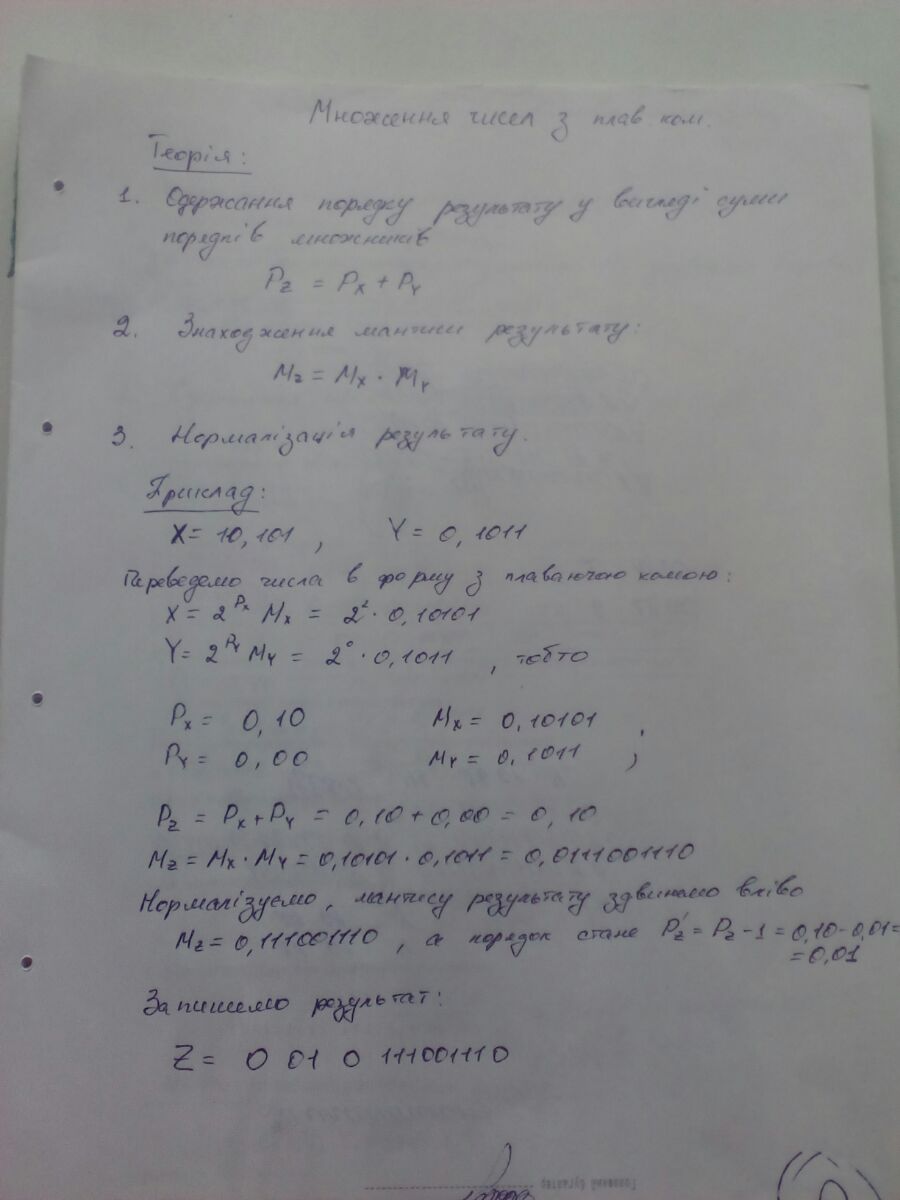 Множення чисел з плав. ком.
Теорія:
1. Одержання порядку результату у вигляді суми
порядків множників
Pz = Px + PY
2. Знаходження мантиси результату:
Mz = Mx · MY
3. Нормалізація результату.
Приклад:
X = 10,101 , Y = 0,1011
Переведемо числа в форму з плаваючою комою:
X = 2^Px Mx = 2^2 · 0,10101
Y = 2^PY MY = 2^0 · 0,1011 , тобто
Px = 0,10 Mx = 0,10101
PY = 0,00 MY = 0,1011 ;
Pz = Px + PY = 0,10 + 0,00 = 0,10
Mz = Mx · MY = 0,10101 · 0,1011 = 0,0111001110
Нормалізуємо, мантису результату здвинемо вліво
Mz = 0,111001110 , а порядок стане P'z = Pz - 1 = 0,10 - 0,01 =
= 0,01
Запишемо результат:
Z = 0 01 0 111001110
Головний бухгалтер